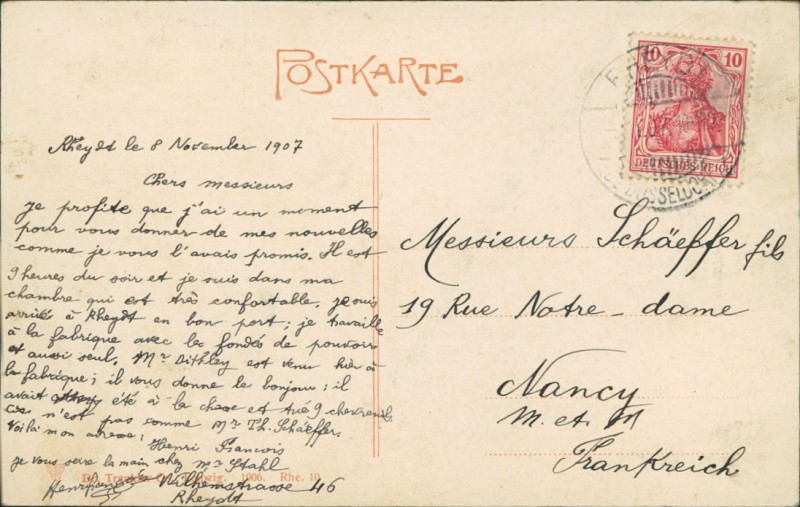 POSTKARTE
10 10
DEUTSCHES REICH
DÜSSELDORF
Rheydt le 8 November 1907
Chers messieurs
je profite que j'ai un moment
pour vous donner de mes nouvelles
comme je vous l'avais promis. Il est
9 heures du soir et je suis dans ma
chambre qui est très confortable, je suis
arrivée à Rheydt en bon port; je travaille
à la fabrique avec les fondés de pouvoir
et aussi seul. Mr Dithley est venu hier à
la fabrique; il vous donne le bonjour; il
avait été à la chasse et tué 9 chevreuils
n'est pas comme Mr Th. Schäeffer.
Voilà mon adresse:
Henri François
je vous serre la main chez Mr Stahl
Wilhemstrasse 46
Rheydt
Leipzig. 1906. Rhe. 10
Messieurs Schäeffer fils
19 Rue Notre-dame
Nancy
M. et M
Frankreich